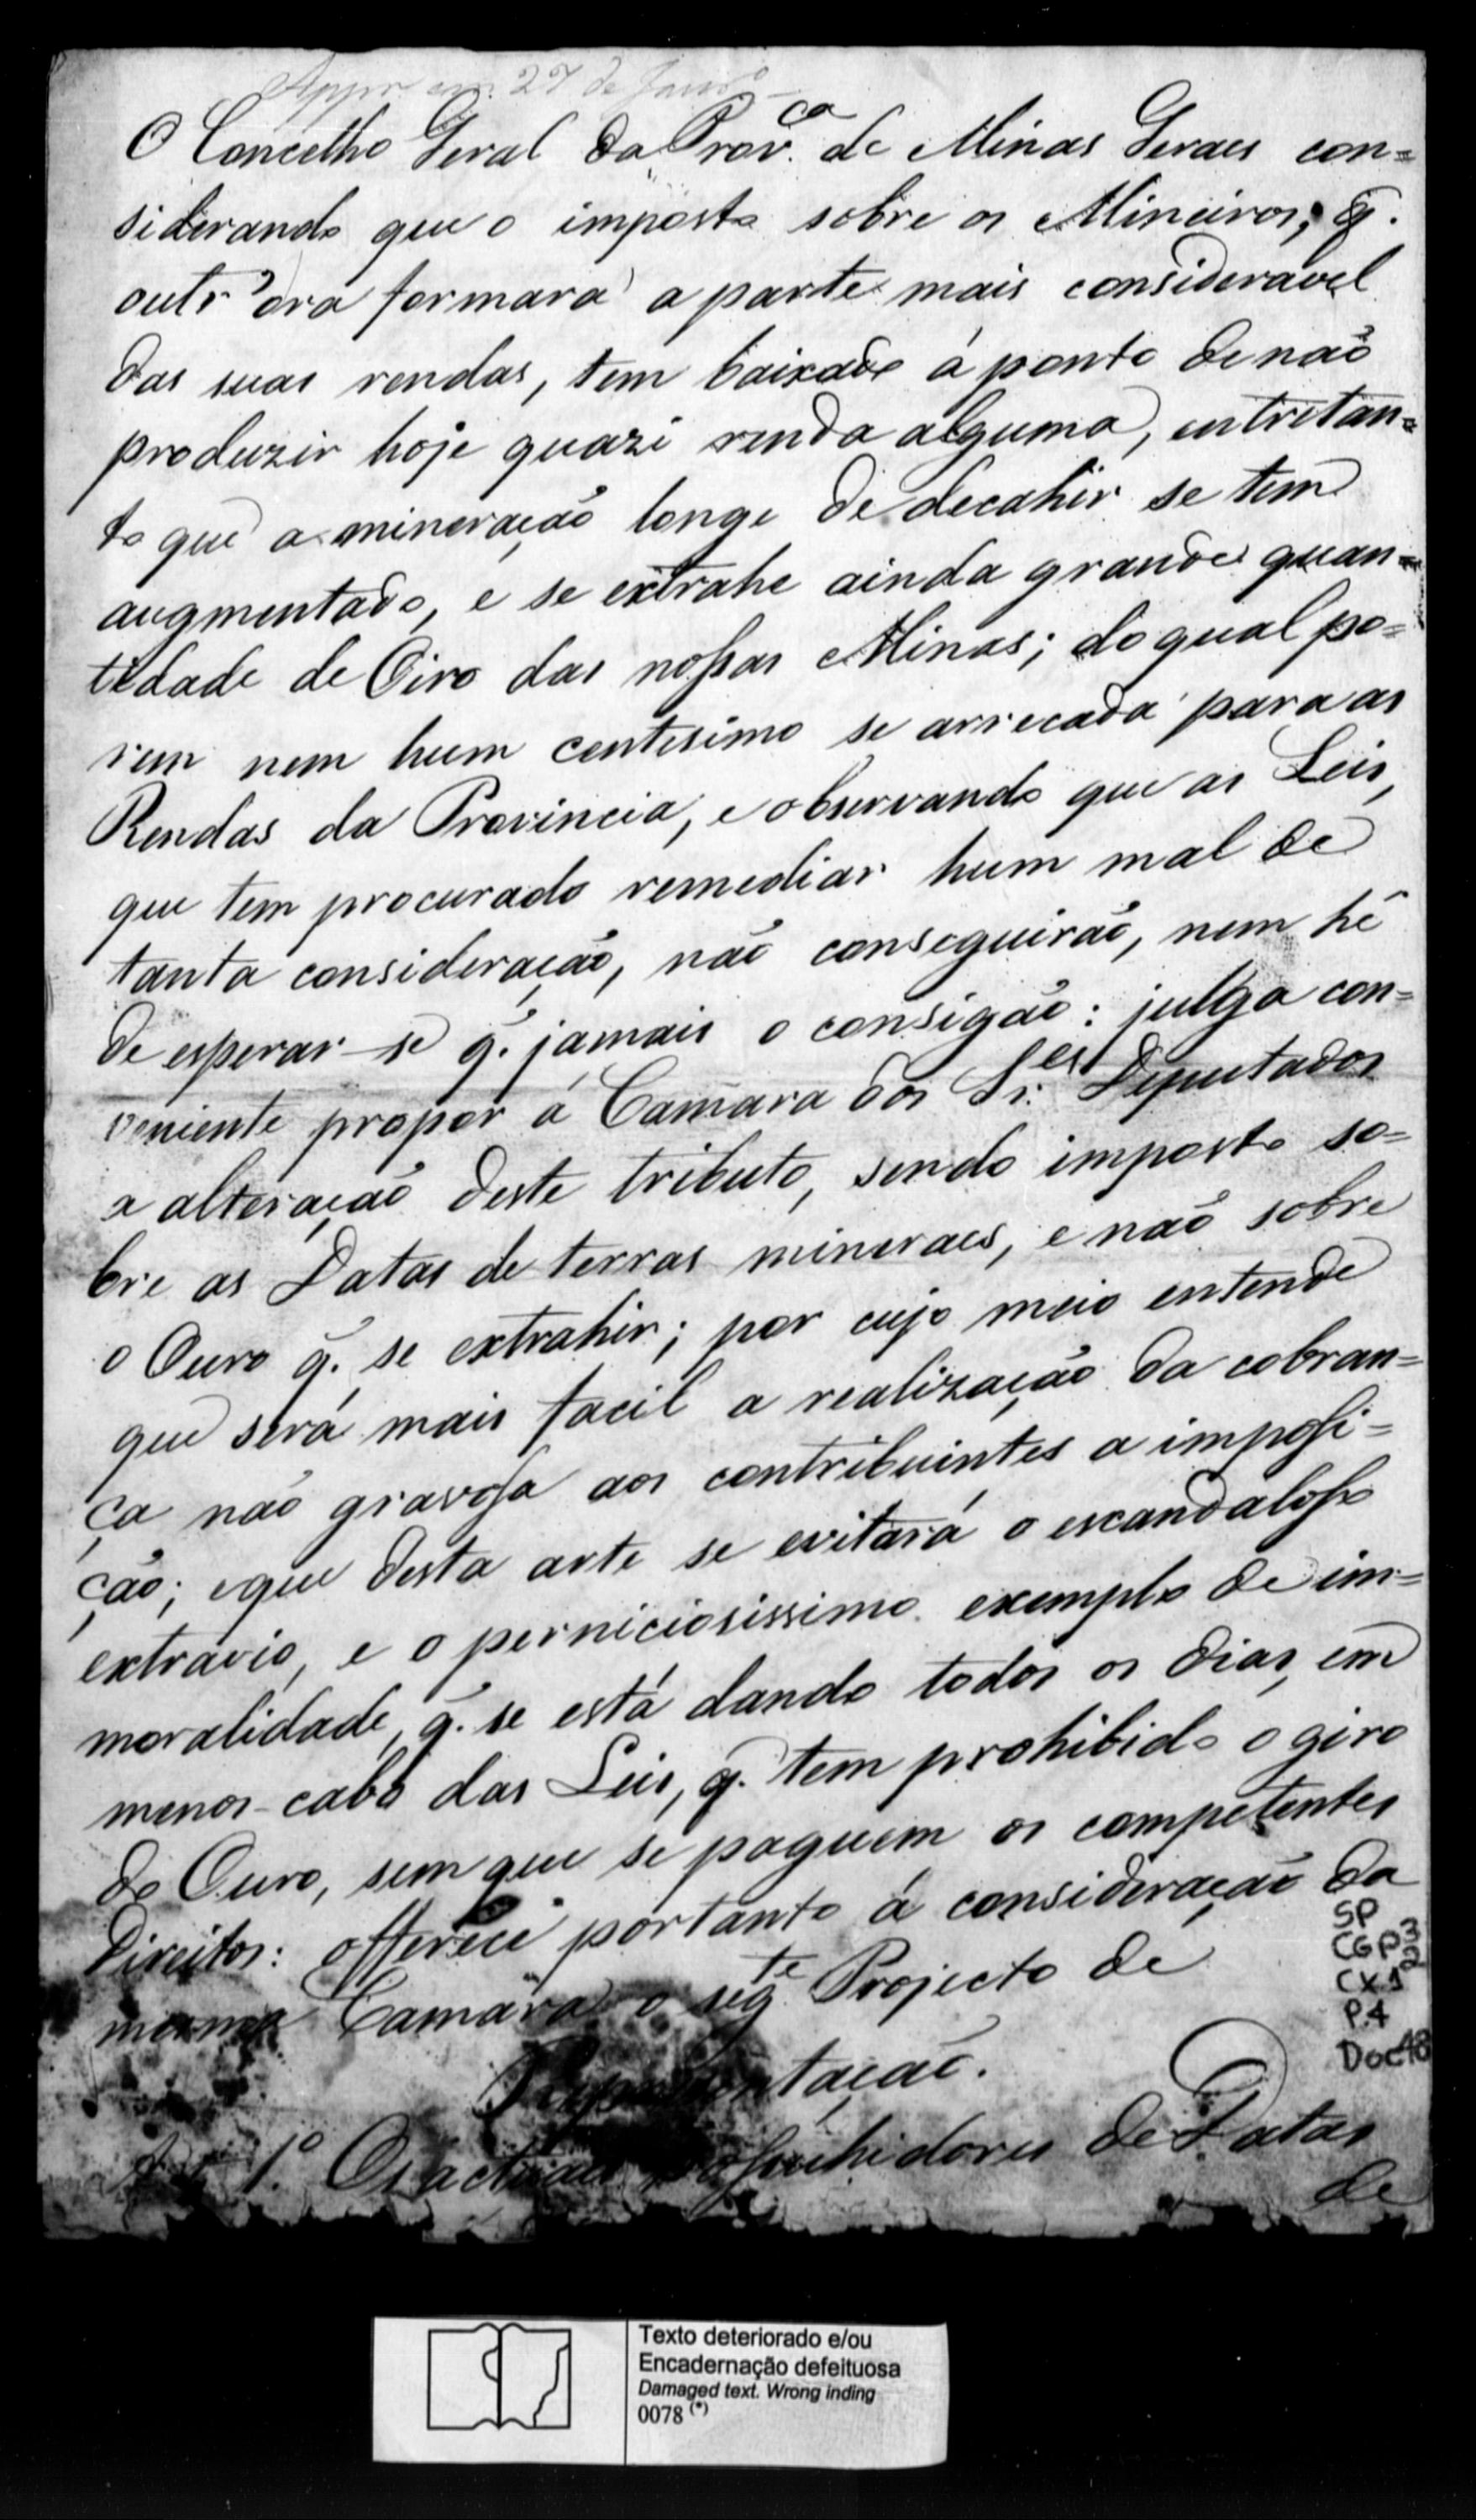 Appr. em 27 de Janr.o
O Concelho Geral da Prov.ca de Minas Geraes con=
siderando que o imposto sobre os Mineiros, q.
outr'ora formara a parte mais consideravel
das suas rendas, tem baixado á ponto de não
produzir hoje quazi renda alguma, entretan=
to que a mineração longe de decahir se tem
augmentado, e se extrahe ainda grande quan=
tidade de Oiro das nossas Minas; do qual po=
rem nem hum centesimo se arrecada para as
Rendas da Provincia, e observando que as Leis,
que tem procurado remediar hum mal de
tanta consideração, não conseguirão, nem hé
de esperar-se q. jamais o consigão: julga con=
veniente propor á Camara dos Sr.es Deputados
a alteração deste tributo, sendo imposto so=
bre as Datas de terras mineraes, e não sobre
o Ouro q. se extrahir; por cujo meio entende
que será mais facil a realização da cobran=
ça não gravosa aos contribuintes a imposi=
ção; e que desta arte se evitará o escandaloso
extravio, e o perniciosissimo exemplo de im=
moralidade, q. se está dando todos os dias, em
menos-cabo das Leis, q. tem prohibido o giro
do Ouro, sem que se paguem os competentes
Direitos: offerece portanto á consideração da
mesma Camara o seg.te Projecto de
Representação.
Art. 1.º Os actuaes possuhidores de Datas
de
SP
CGP3
2
CX1
P.4
Doc48
Texto deteriorado e/ou
Encadernação defeituosa
Damaged text. Wrong inding
0078 (*)